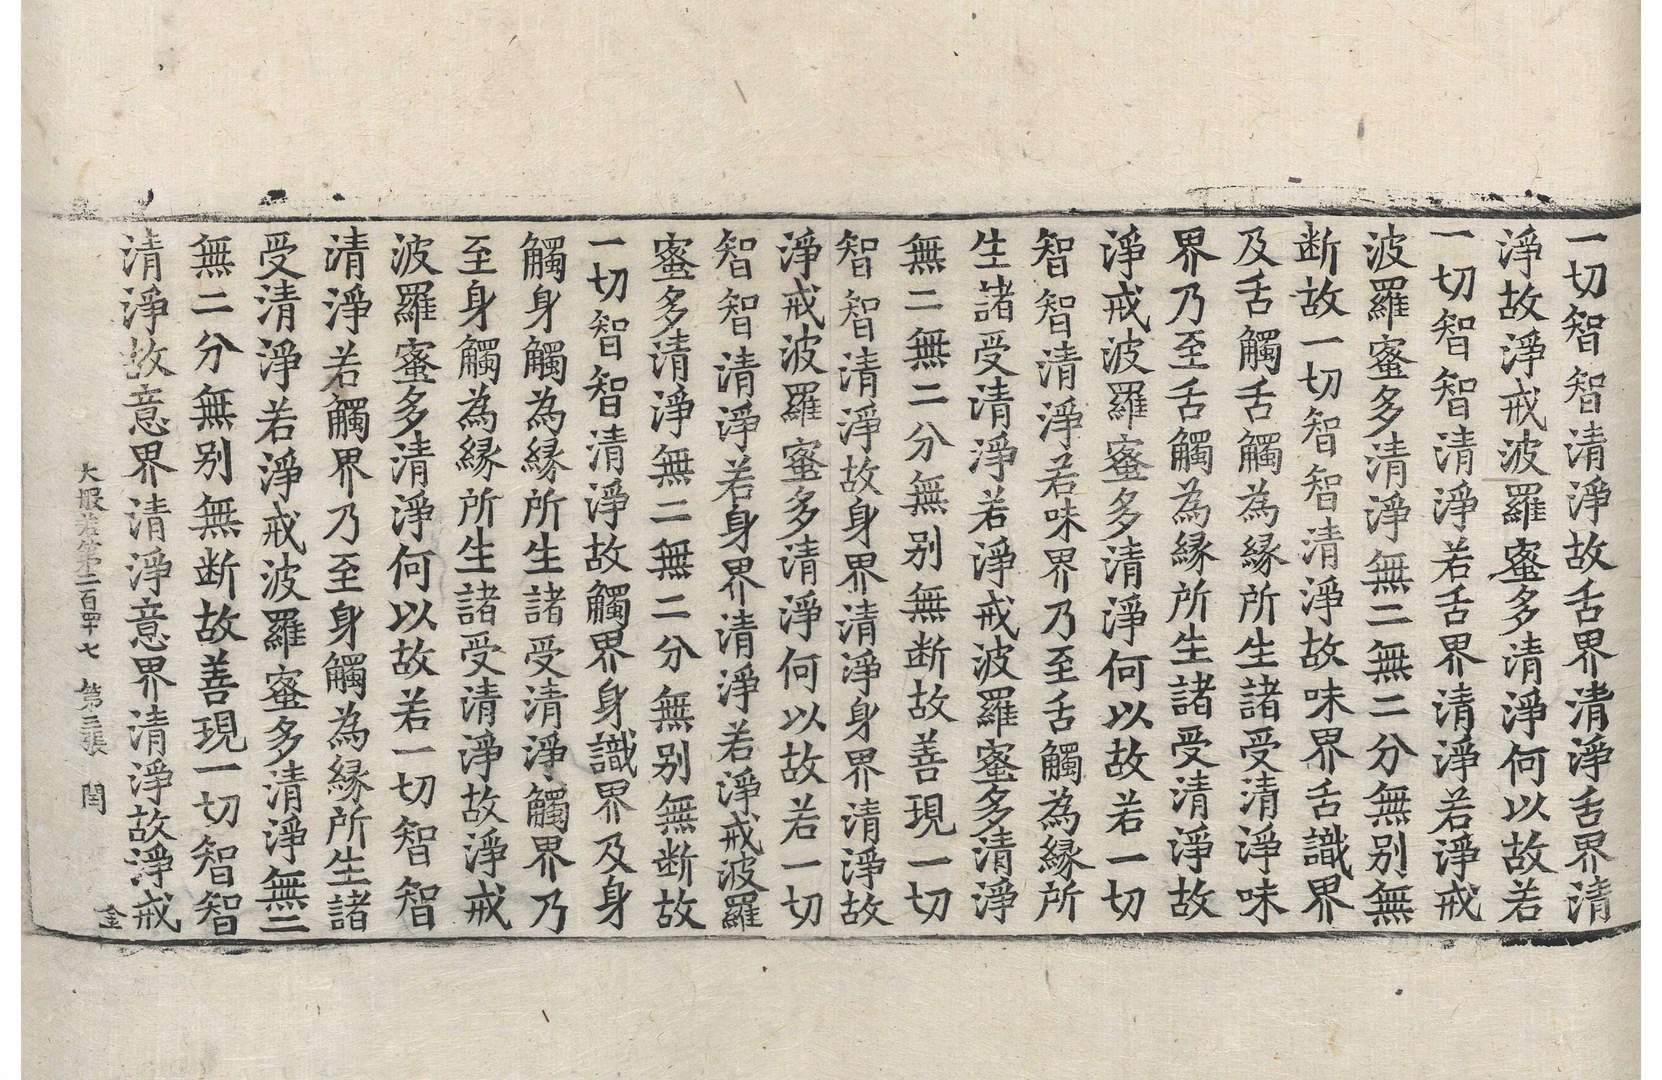 一切智智清淨故舌界清淨舌界清
淨故淨戒波羅蜜多清淨何以故若
一切智智清淨若舌界清淨若淨戒
波羅蜜多清淨無二無二分無别無
断故一切智智清淨故味界舌識界
及舌觸舌觸為緣所生諸受清淨味
界乃至舌觸為緣所生諸受清淨故
淨戒波羅蜜多清淨何以故若一切
智智清淨若味界乃至舌觸為緣所
生諸受清淨若淨戒波羅蜜多清淨
無二無二分無别無断故善現一切
智智清淨故身界清淨身界清淨故
淨戒波羅蜜多清淨何以故若一切
智智清淨若身界清淨若淨戒波羅
蜜多清淨無二無二分無别無断故
一切智智清淨故觸界身識界及身
觸身觸為緣所生諸受清淨觸界乃
至身觸為緣所生諸受清淨故淨戒
波羅蜜多清淨何以故若一切智智
清淨若觸界乃至身觸為緣所生諸
受清淨若淨戒波羅蜜多清淨無二
無二分無别無断故善現一切智智
清淨故意界清淨意界清淨故淨戒
大般卷第二百四十七 第三張 閏 金